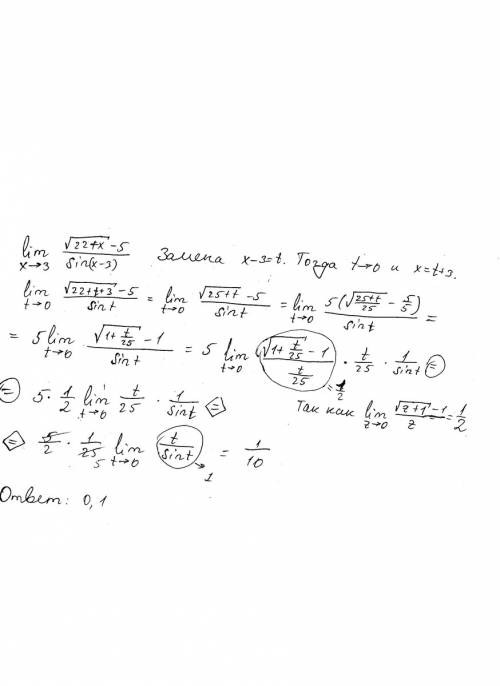 lim x→3 (√(22+x) -5)/(sin(x-3)) Замена x-3=t. Тогда t→0 и x=t+3.
lim t→0 (√(22+t+3) -5)/(sin t) = lim t→0 (√(25+t) -5)/(sin t) = lim t→0 (5(√((25+t)/25) - 5/5))/(sin t) =
= 5 lim t→0 (√(1+t/25) -1)/(sin t) = 5 lim t→0 (√(1+t/25) -1)/(t/25) · t/25 · 1/(sin t) =
= 1/2
= 5 · 1/2 lim t→0 t/25 · 1/(sin t) = Так как lim z→0 (√(z+1) -1)/z = 1/2
= 5/2 · 1/25 5 lim t→0 t/(sin t) → 1 = 1/10
Ответ: 0,1